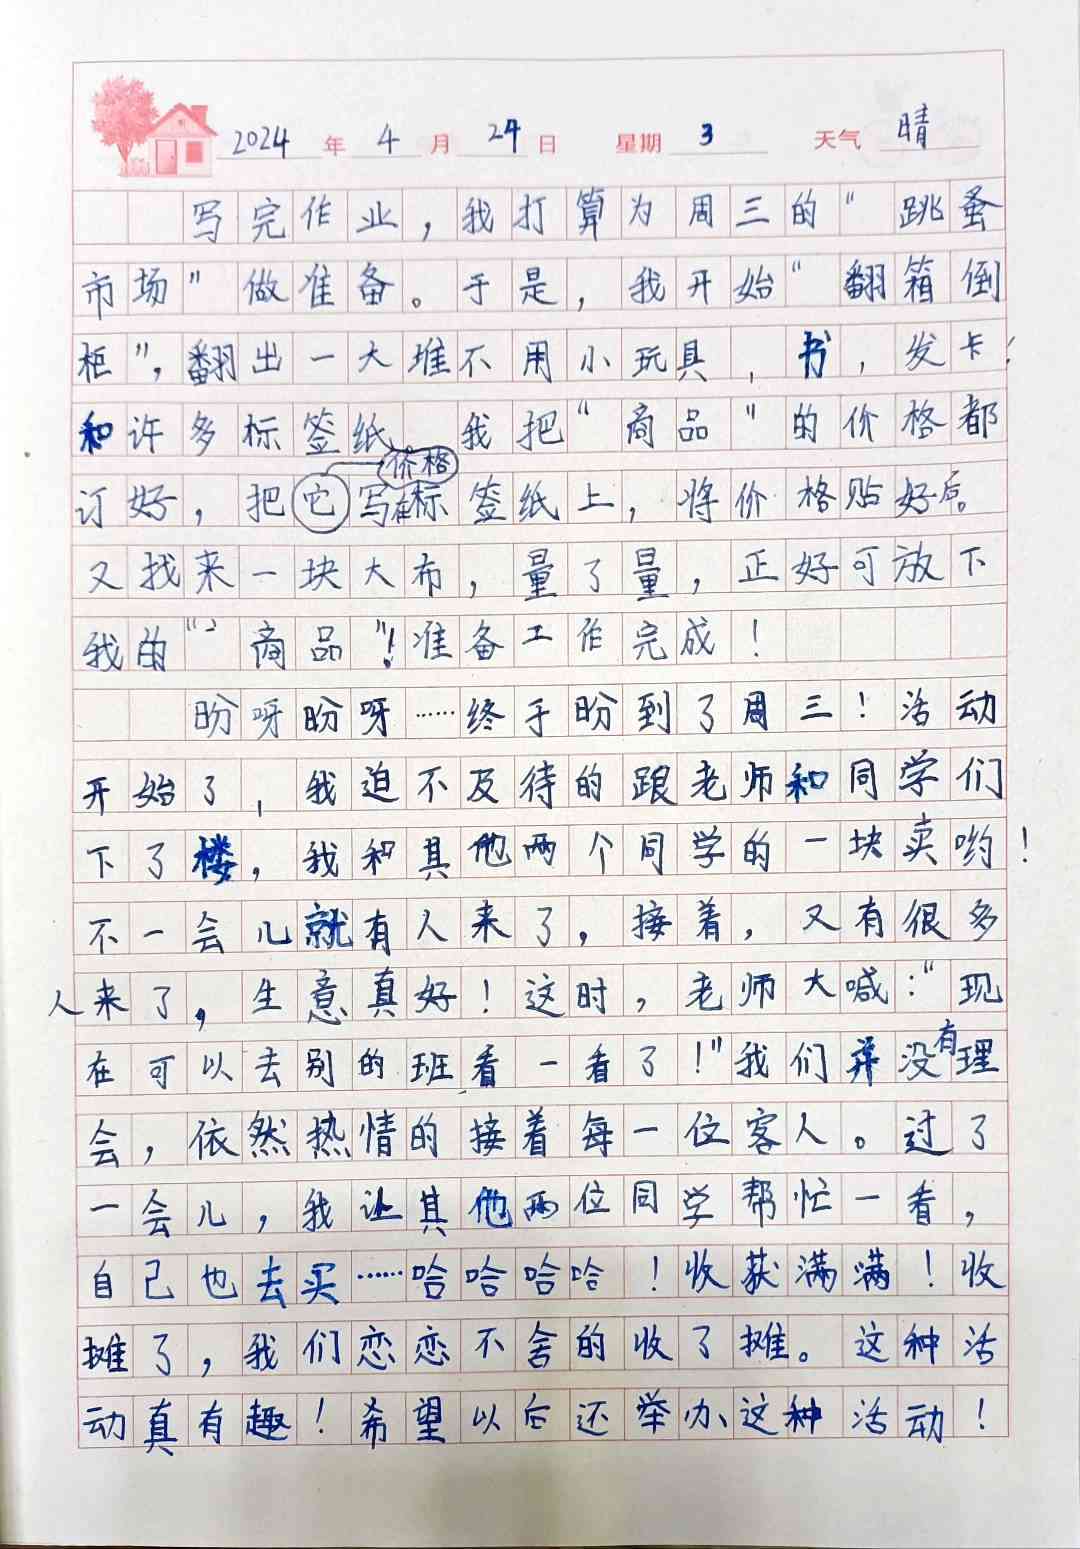 2024年4月24日 星期3 天气晴
写完作业，我打算为周三的“跳蚤
市场”做准备。于是，我开始“翻箱倒
柜”，翻出一大堆不用小玩具，书，发卡，
和许多标签纸 我把“商品”的价格都
价格
订好，把它写在标签纸上，将价格贴好后。
又找来一块大布，量了量，正好可放下
我的“商品”！准备工作完成！
盼呀盼呀……终于盼到了周三！活动
开始了，我迫不及待的跟老师和同学们
下了楼，我和其他两个同学的一块卖哟！
不一会儿就有人来了，接着，又有很多
人来了，生意真好！这时，老师大喊：“现
在可以去别的班看一看了！”我们并没有理
会，依然热情的接着每一位客人。过了
一会儿，我让其他两位同学帮忙一看，
自己也去买……哈哈哈哈！收获满满！收
摊了，我们恋恋不舍的收了摊。这种活
动真有趣！希望以后还举办这种活动！